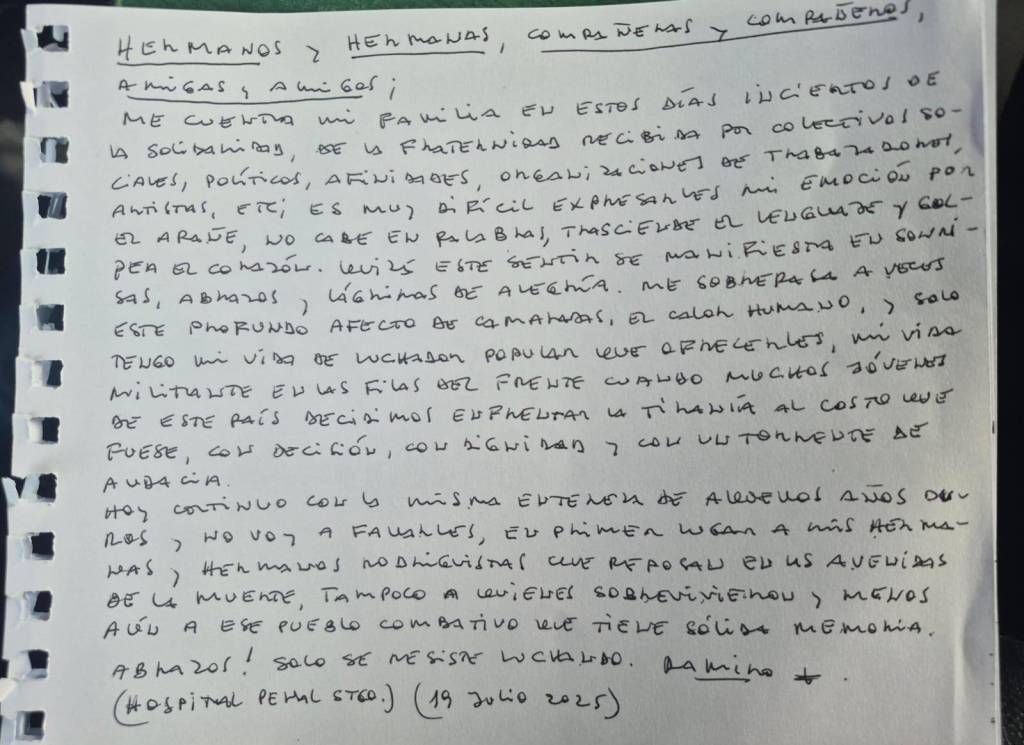 HERMANOS Y HERMANAS, COMPAÑERAS Y COMPAÑEROS,
AMIGAS Y AMIGOS;
ME CUENTA MI FAMILIA EN ESTOS DÍAS INCIERTOS DE
LA SOLIDARIDAD, DE LA FRATERNIDAD RECIBIDA POR COLECTIVOS SO-
CIALES, POLÍTICOS, AFINIDADES, ORGANIZACIONES DE TRABAJADORES,
ARTISTAS, ETC; ES MUY DIFÍCIL EXPRESARLES MI EMOCIÓN POR
EL ARAÑE, NO CABE EN PALABRAS, TRASCIENDE EL LENGUAJE Y GOL-
PEA EL CORAZÓN. QUIZÁS ESTE SENTIR SE MANIFIESTA EN SONRI-
SAS, ABRAZOS Y LÁGRIMAS DE ALEGRÍA. ME SOBREPASA A VECES
ESTE PROFUNDO AFECTO DE CAMARADAS, EL CALOR HUMANO, Y SOLO
TENGO MI VIDA DE LUCHADOR POPULAR QUE OFRECERLES, MI VIDA
MILITANTE EN LAS FILAS DEL FRENTE CUANDO MUCHOS JÓVENES
DE ESTE PAÍS DECIDIMOS ENFRENTAR LA TIRANÍA AL COSTO QUE
FUESE, CON DECISIÓN, CON DIGNIDAD Y CON UN TORRENTE DE
AUDACIA.
HOY CONTINUO CON LA MISMA ENTEREZA DE AQUELLOS AÑOS DU-
ROS Y NO VOY A FALLARLES, EN PRIMER LUGAR A MIS HERMA-
NAS Y HERMANOS RODRIGUISTAS QUE REPOSAN EN LAS AVENIDAS
DE LA MUERTE, TAMPOCO A QUIENES SOBREVIVIERON Y MENOS
AÚN A ESE PUEBLO COMBATIVO QUE TIENE SÓLIDA MEMORIA.
ABRAZOS! SOLO SE RESISTE LUCHANDO. Ramiro
(HOSPITAL PENAL STGO.) (19 JULIO 2025)